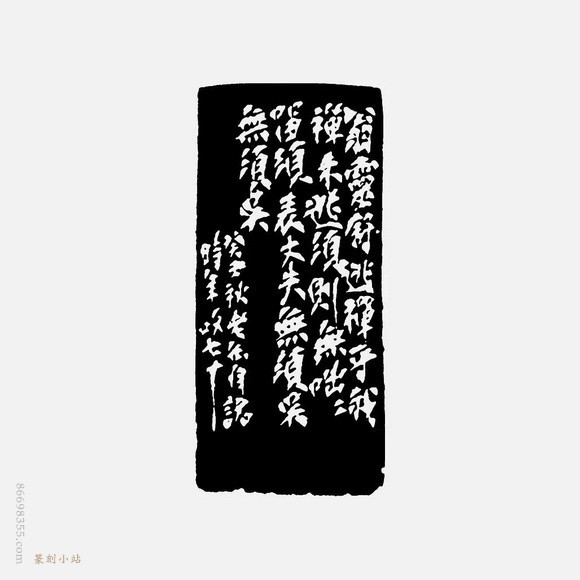 翁靈舒逃禪乎哉
禪未逃須則無咄々
留須表丈夫無須吳
無須吳
癸丑秋老缶自
時年政七十
86698355.com
篆刻小站